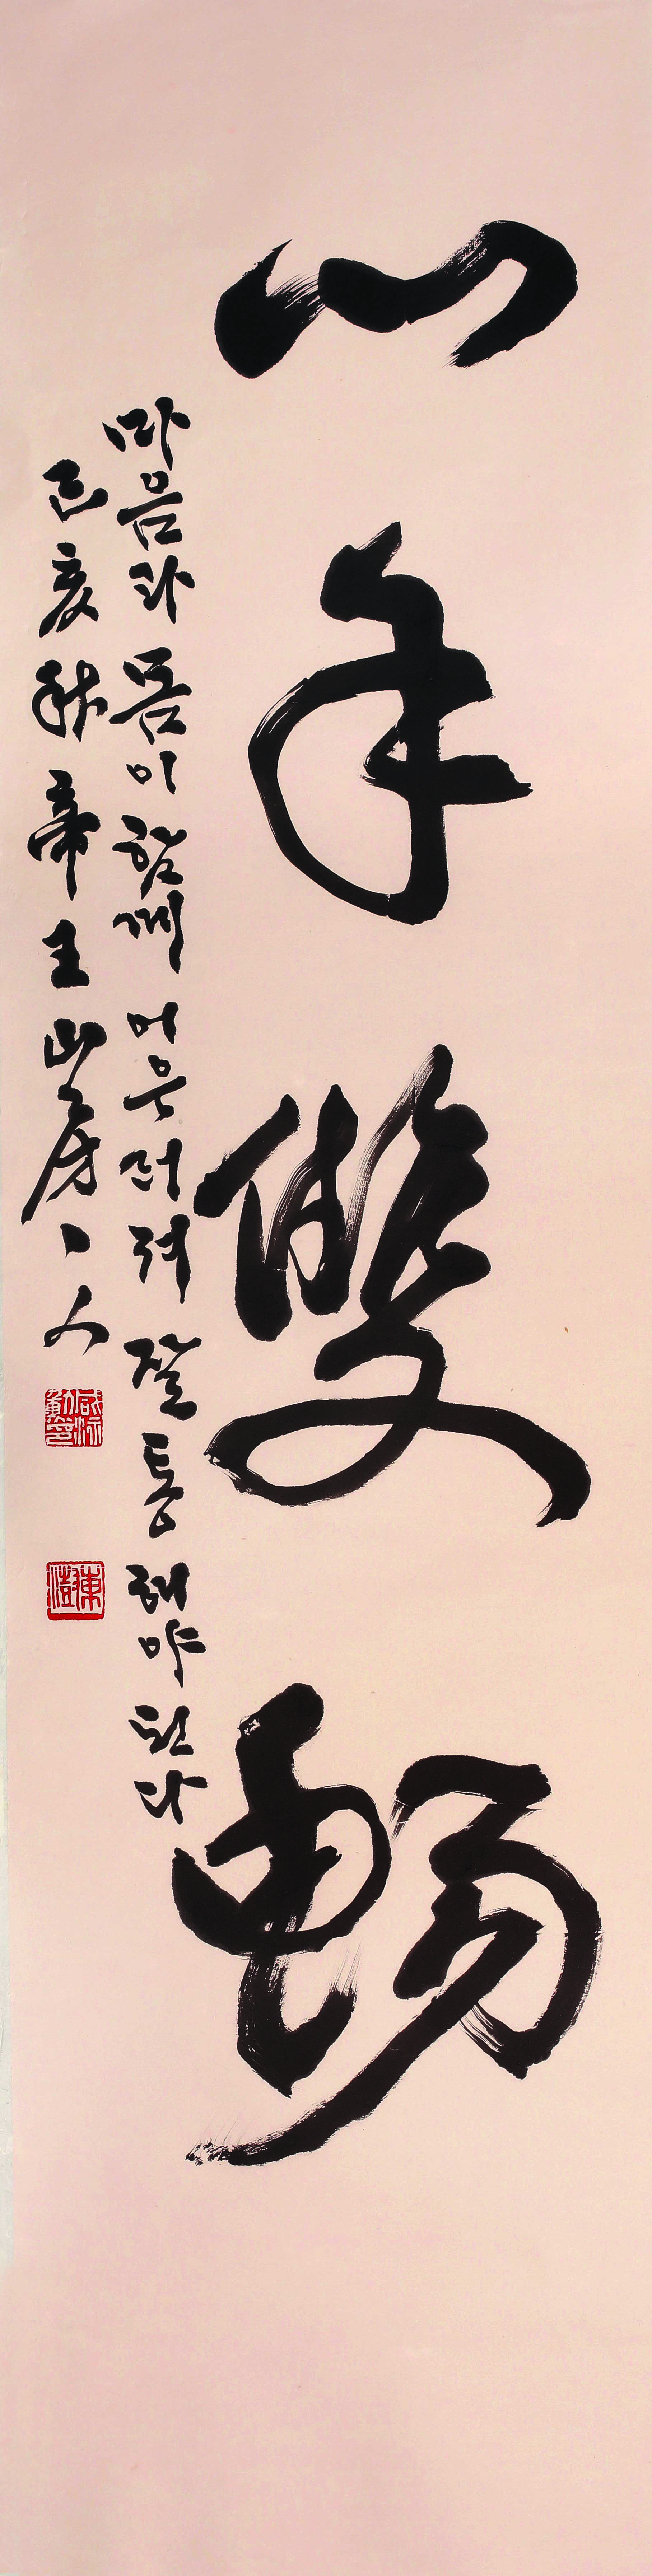 心手雙暢
마음과 몸이 함께 어우러져 잘 통해야 된다
己亥秋 帝王山房 主人
東澍